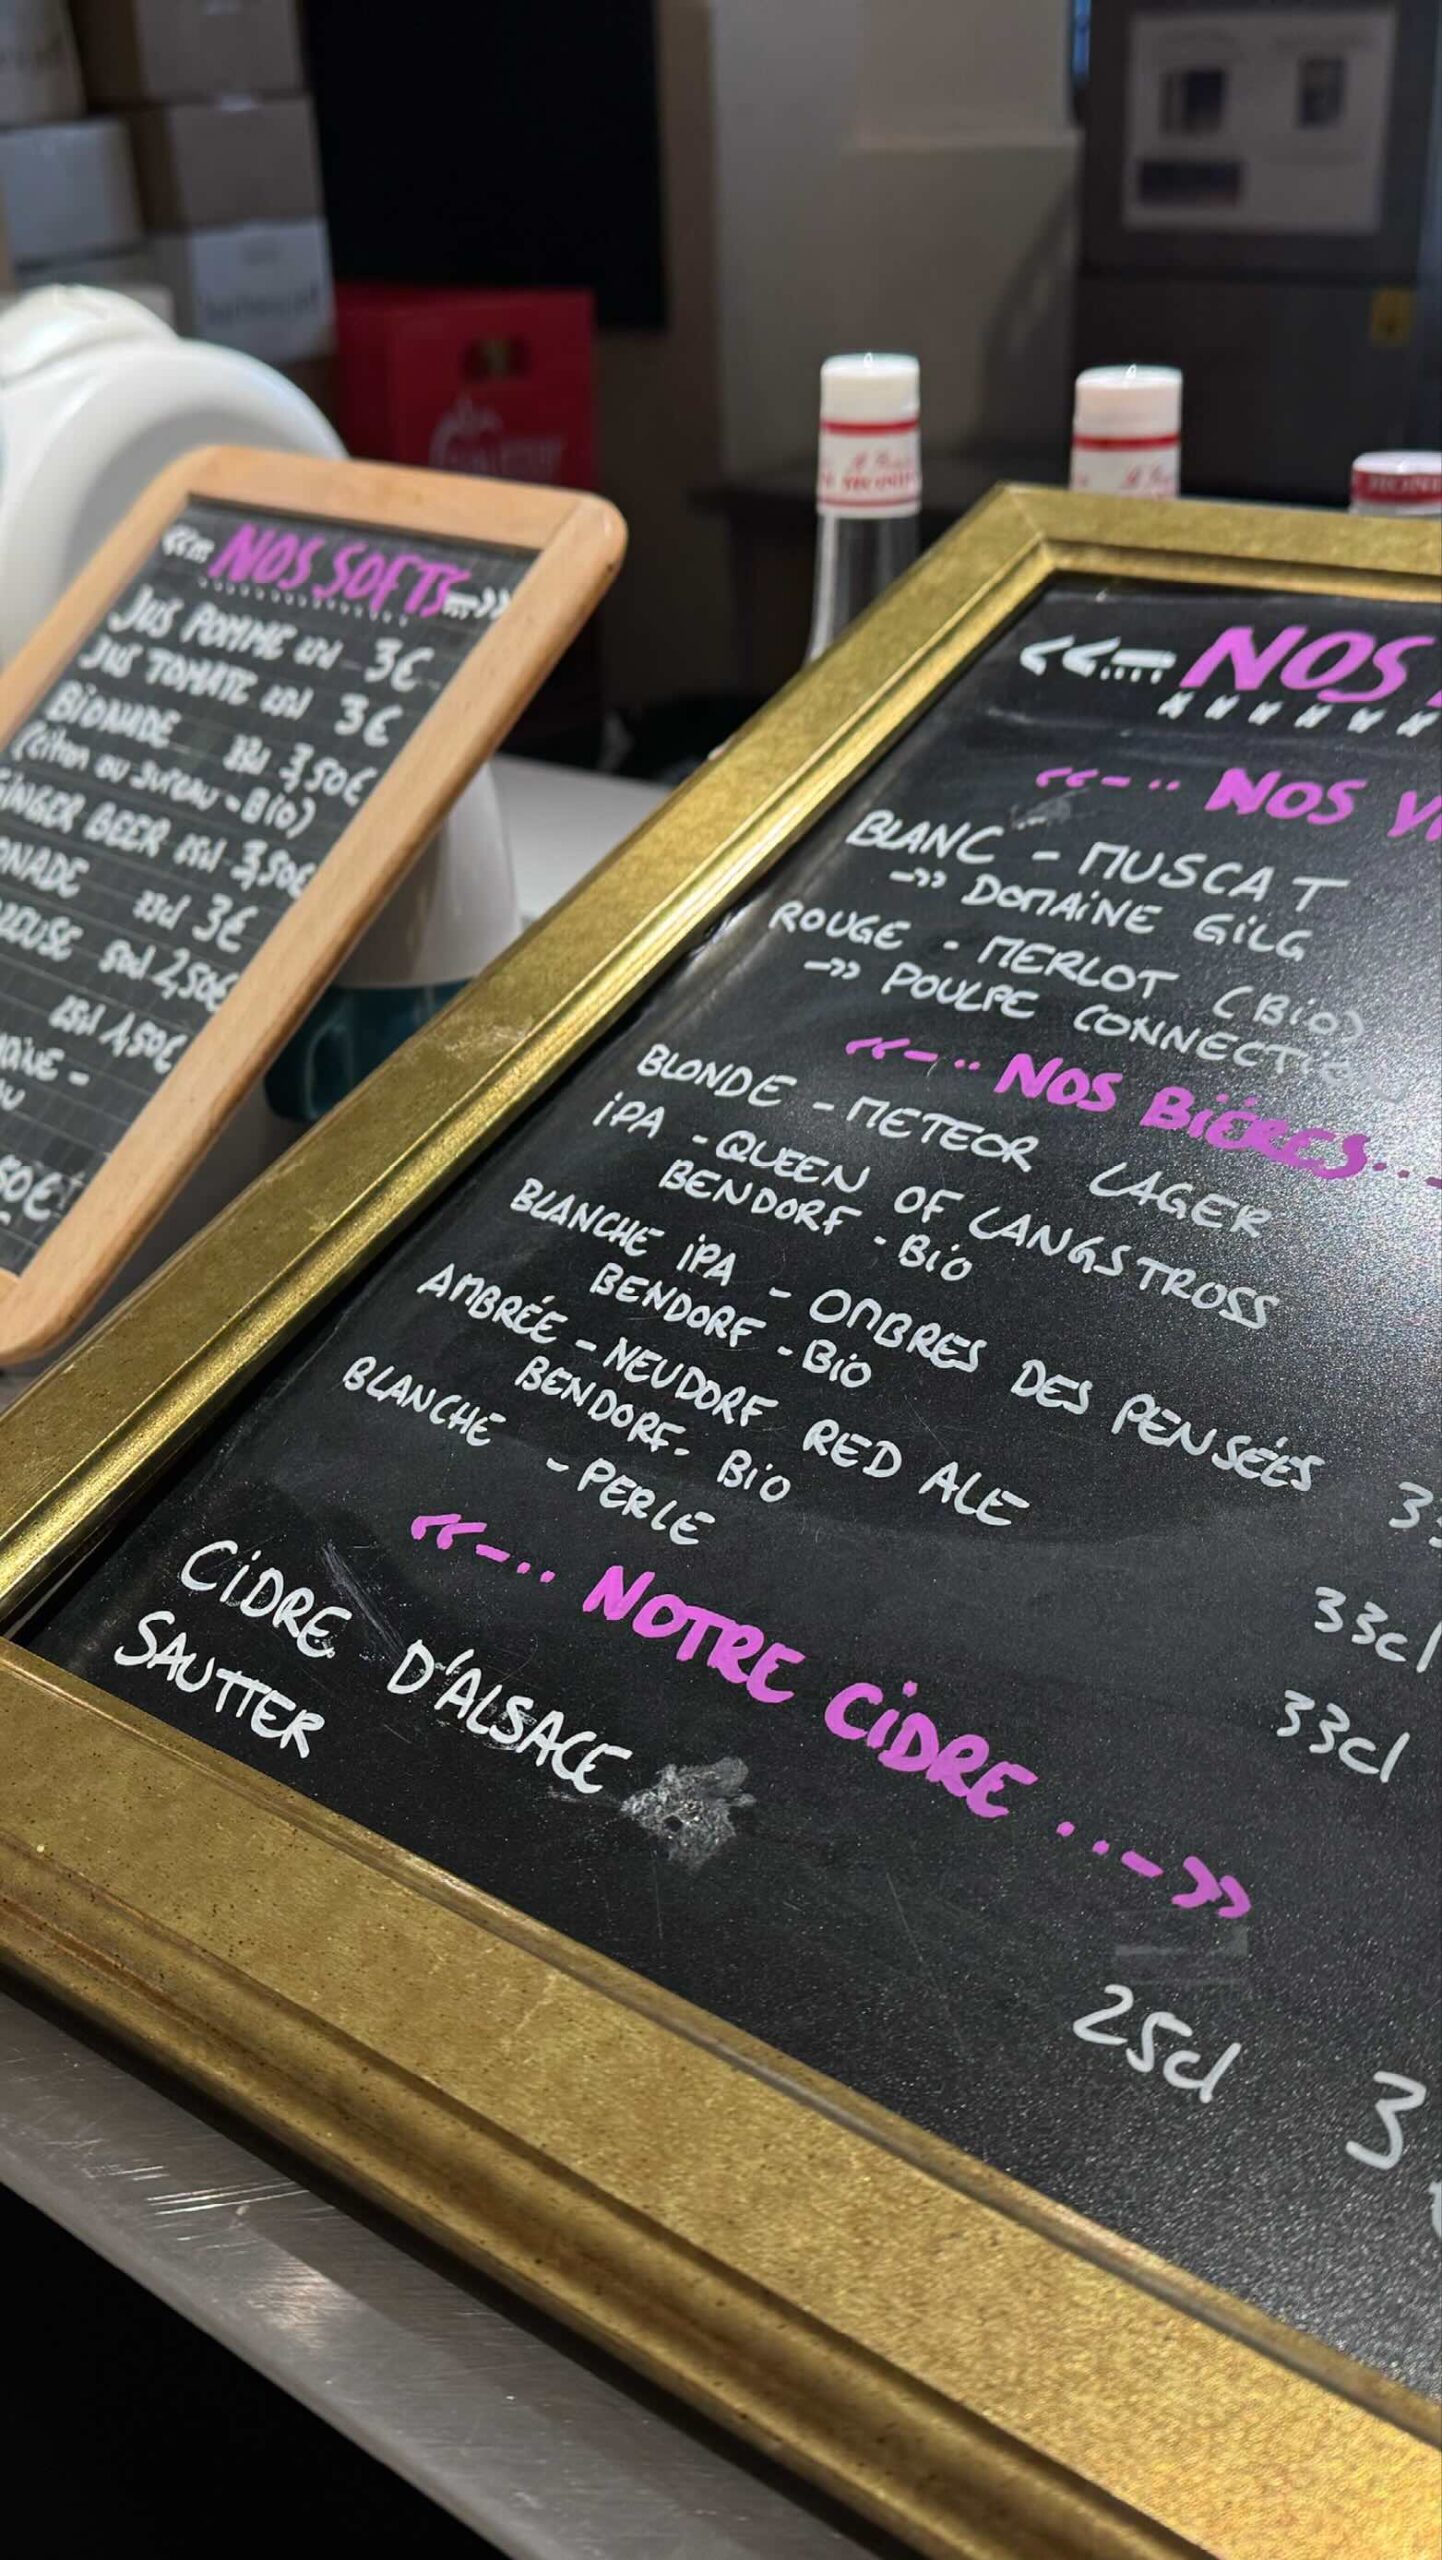 NOS SOFTS
JUS POMME 3€
JUS TOMATE 3€
BIONADE 3,50€
(citron ou sureau - Bio)
GINGER BEER 3,50€
33cl 3€
50cl 2,50€
25cl 1,50€
50€
NOS
NOS
BLANC - MUSCAT
DOMAiNE GiLG
ROUGE - MERLOT (Bio)
POULPE CONNECTION
NOS BiÈRES
BLONDE - METEOR LAGER
iPA - QUEEN OF LANGSTROSS
BENDORF - Bio
BLANCHE iPA - OMBRES DES PENSÉES
BENDORF - Bio
AMBRÉE - NEUDORF RED ALE
BENDORF - Bio
33cl
BLANCHE - PERLE
33cl
NOTRE CiDRE
CiDRE D'ALSACE
SAUTTER
25cl 3